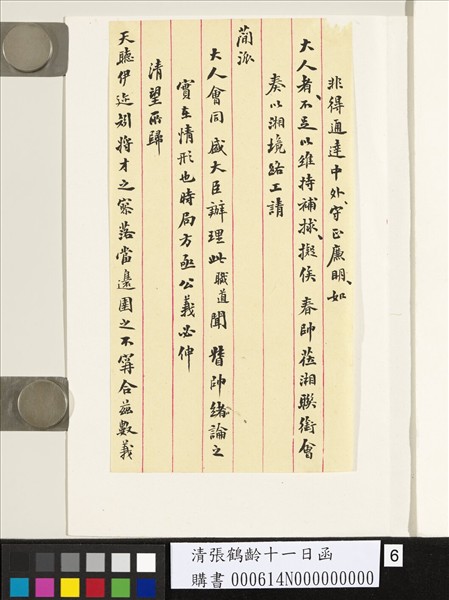 非得通達中外、守正廉明、如
大人者、不足以維持補捄、擬俟 春帥蒞湘聯銜會
奏以湘境路工請
簡派
大人會同 盛大臣辦理此職道聞 督帥緒論之
實在情形也時局方亟公義必伸
清望所歸
天聽伊邇矧將才之寥落當邊圉之不甯合茲數義
清張鶴齡十一日函
購書 000614N000000000
6